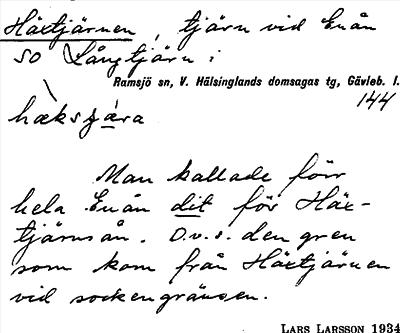 Häxtjärnen, tjärn vid Enån
SO Långtjärn:
Ramsjö sn, V. Hälsinglands domsagas tg, Gävleb. l.
144
hæksʒæra
Man kallade förr
hela Enån dit för Häx-
tjärnsån. D.v.s. den gren
som kom från Häxtjärnen
vid sockengränsen.
LARS LARSSON 1934